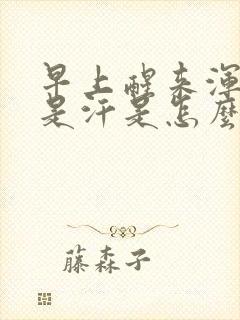 早上醒来浑
是汗是怎麼
藤森子